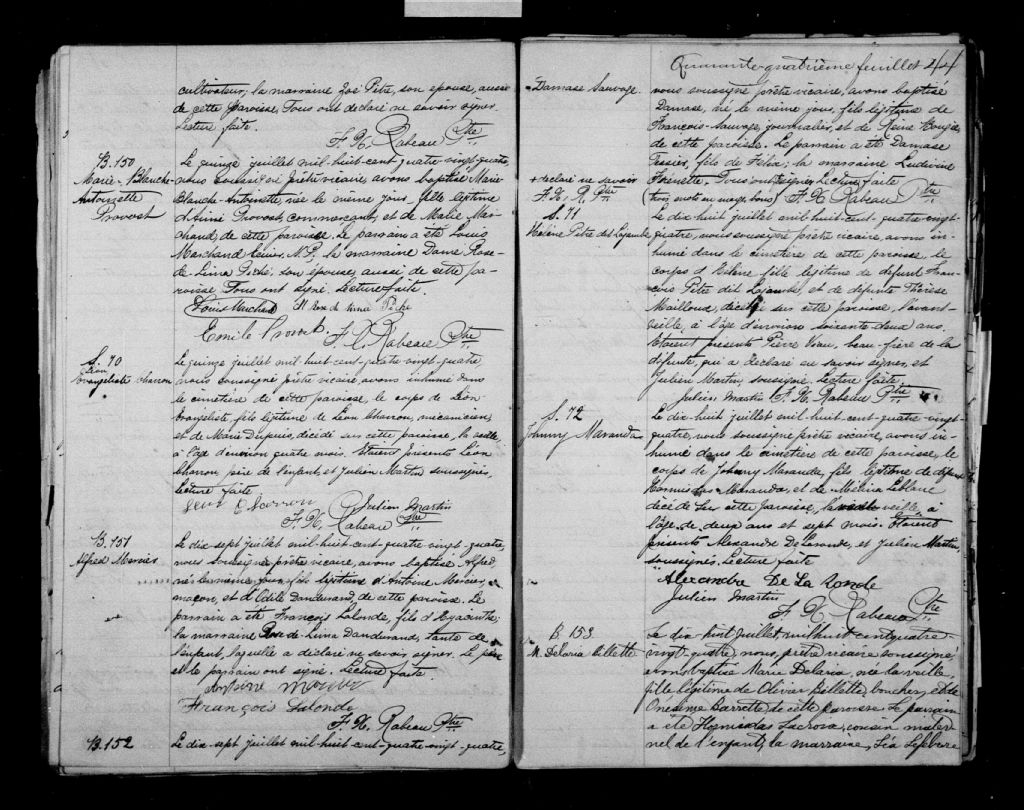 cultivateur; la marraine Zoé Pitre, son épouse, aussi
de cette paroisse. Tous ont déclaré ne savoir signer.
Lecture faite.
F. X. Rabeau Ptre
B. 150
Marie-Blanche-
Antoinette
Provost
Le quinze juillet mil-huit-cent-quatre-vingt-quatre,
nous soussigné prêtre vicaire, avons baptisé Marie-
Blanche-Antoinette, née le même jour, fille légitime
d'Aimé Provost, commerçant, et de Marie Mar-
chand, de cette paroisse. Le parrain a été Louis
Marchand, N.P., la marraine Dame Rose-
de-Lima Piché, son épouse, aussi de cette pa-
roisse. Tous ont signé. Lecture faite.
Louis Marchand M Rose de Lima Piché
Emile Provost. F. X. Rabeau Ptre
S. 70
Léon
Evangéliste Charron
Le quinze juillet mil-huit-cent-quatre-vingt-quatre,
nous soussigné prêtre vicaire, avons inhumé dans
le cimetière de cette paroisse, le corps de Léon
Evangéliste, fils légitime de Léon Charron, mécanicien,
et de Marie Dupuis, décédé sur cette paroisse, la veille
à l'âge d'environ quatre mois. Etaient présents Léon
Charron, père de l'enfant, et Julien Martin, soussignés,
Lecture faite
Leon Charron Julien Martin
F. X. Rabeau Ptre
B. 151
Alfred Mercier
Le dix-sept juillet mil-huit-cent-quatre-vingt-quatre,
nous soussigné prêtre vicaire, avons baptisé Alfred,
né le même jour, fils légitime d'Antoine Mercier,
maçon, et d'Odile Dandurand, de cette paroisse. Le
parrain a été François Lalonde, fils d'Hyacinthe;
la marraine Rose-de-Lima Dandurand, tante de
l'enfant, laquelle a déclaré ne savoir signer. Le père
et le parrain ont signé. Lecture faite.
Antoine Mercier
François Lalonde
F. X. Rabeau Ptre
B. 152
Le dix-sept juillet mil-huit-cent-quatre-vingt-quatre
Quarante-quatrième feuillet 44
Damase Sauvage.
nous soussigné prêtre vicaire, avons baptisé
Damase, né le même jour, fils légitime de
François Sauvage, journalier, et de Reine
de cette paroisse. Le parrain a été Damase
Tessier, fils de Félix; la marraine Ludivine
Frénette. Tous ont signer. Lecture faite
+ déclaré ne savoir
F. X. R. Ptre
(trois mots en marge bons) F. X. Rabeau Ptre
S. 71
Hélène Pitre dit Lajambe
Le dix-huit juillet mil-huit-cent-quatre-vingt-
quatre, nous soussigné prêtre vicaire, avons in-
humé dans le cimetière de cette paroisse, le
corps d'Hélène fille légitime de défunt Fran-
çois Pitre dit Lajambe, et de défunte Thérèse
Mailloux, décédée sur cette paroisse, l'avant-
veille, à l'âge d'environ soixante-deux ans.
Etaient présents Pierre Viau, beau-frère de la
défunte, qui a déclaré ne savoir signer, et
Julien Martin, soussigné. Lecture faite.
Julien Martin F. X. Rabeau Ptre
S. 72
Johnny Maranda
Le dix-huit juillet mil-huit-cent-quatre-vingt-
quatre, nous soussigné prêtre vicaire, avons in-
humé dans le cimetière de cette paroisse, le
corps de Johnny Maranda, fils légitime de défunt
Hormisdas Maranda, et de Mélina Leblanc
décédé sur cette paroisse, la veille, à
l'âge de deux ans et sept mois. Etaient
présents Alexandre Delaronde, et Julien Martin,
soussignés. Lecture faite
Alexandre De La Ronde
Julien Martin
F. X. Rabeau Ptre
B. 153.
M. Delaria Billette
Le dix-huit juillet mil huit cent quatre-
vingt-quatre, nous, prêtre vicaire soussigné,
avons baptisé Marie Delaria, née la veille,
fille légitime de Olivier Billette, boucher, et de
Onésime Barrette de cette paroisse. Le parrain
a été Hormisdas Lacroix, cousin mater-
nel de l'enfant, la marraine, Léa Lefebvre